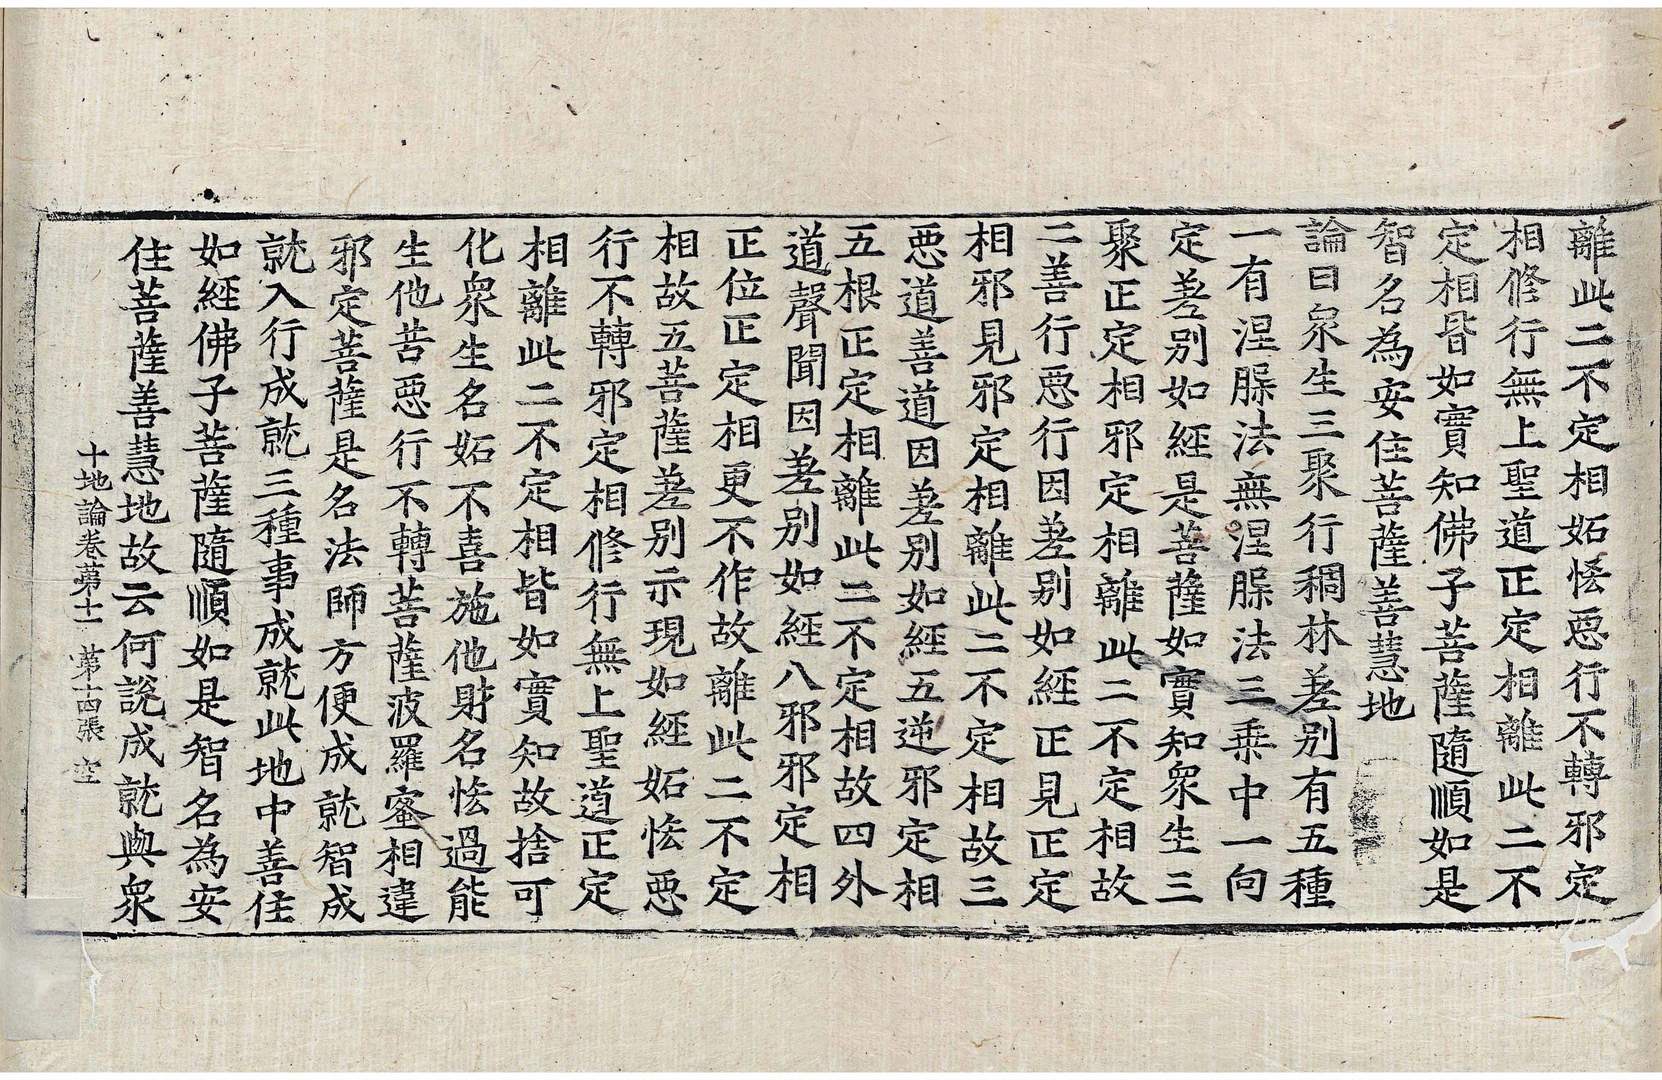 離此二不定相妬悋惡行不轉邪定
相修行無上聖道正定相離此二不
定相皆如實知佛子菩薩隨順如是
智名為安住菩薩善慧地
論曰衆生三聚行稠林差別有五種
一有涅脲法無涅脲法三乘中一向
定差別如經是菩薩如實知衆生三
聚正定相邪定相離此二不定相故
二善行惡行因差別如經正見正定
相邪見邪定相離此二不定相故三
惡道善道因差別如經五逆邪定相
五根正定相離此二不定相故四外
道聲聞因差別如經八邪邪定相
正位正定相更不作故離此二不定
相故五菩薩差別示現如經妬悋惡
行不轉邪定相修行無上聖道正定
相離此二不定相皆如實知故捨可
化衆生名妬不喜施他財名悋過能
生他苦惡行不轉菩薩波羅蜜相違
邪定菩薩是名法師方便成就智成
就入行成就三種事成就此地中善住
如經佛子菩薩隨順如是智名為安
住菩薩善慧地故云何說成就與衆
十地論卷第十一 第十四張 空